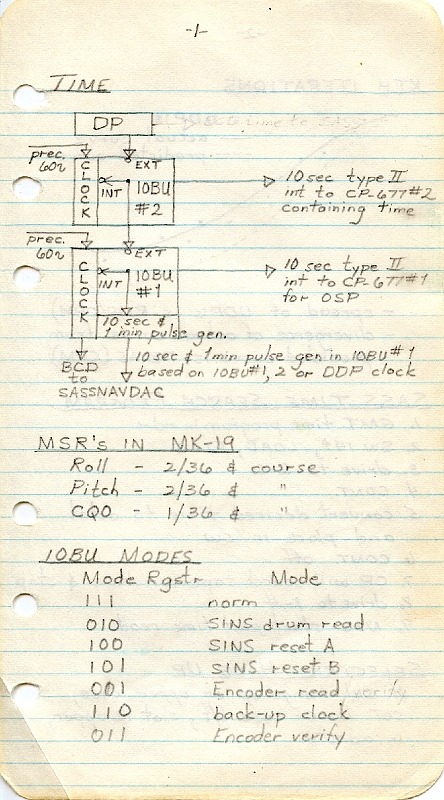 -1-
TIME
DP
prec. 60~
EXT
CLOCK
INT
IOBU #2
10 sec type II int to CP-677 #2 containing time
prec. 60~
EXT
CLOCK
INT
IOBU #1
10 sec type II int to CP-677 #1 for OSP
10 sec & 1 min pulse gen.
BCD to SASSNAVDAC
10 sec & 1min pulse gen in IOBU #1
based on IOBU#1, 2 or DDP clock
MSR's IN MK-19
Roll - 2/36 & course
Pitch - 2/36 & "
CQO - 1/36 & "
IOBU MODES
Mode Rgstr Mode
111 norm
010 SINS drum read
100 SINS reset A
101 SINS reset B
001 Encoder read
110 back-up clock
011 Encoder verify